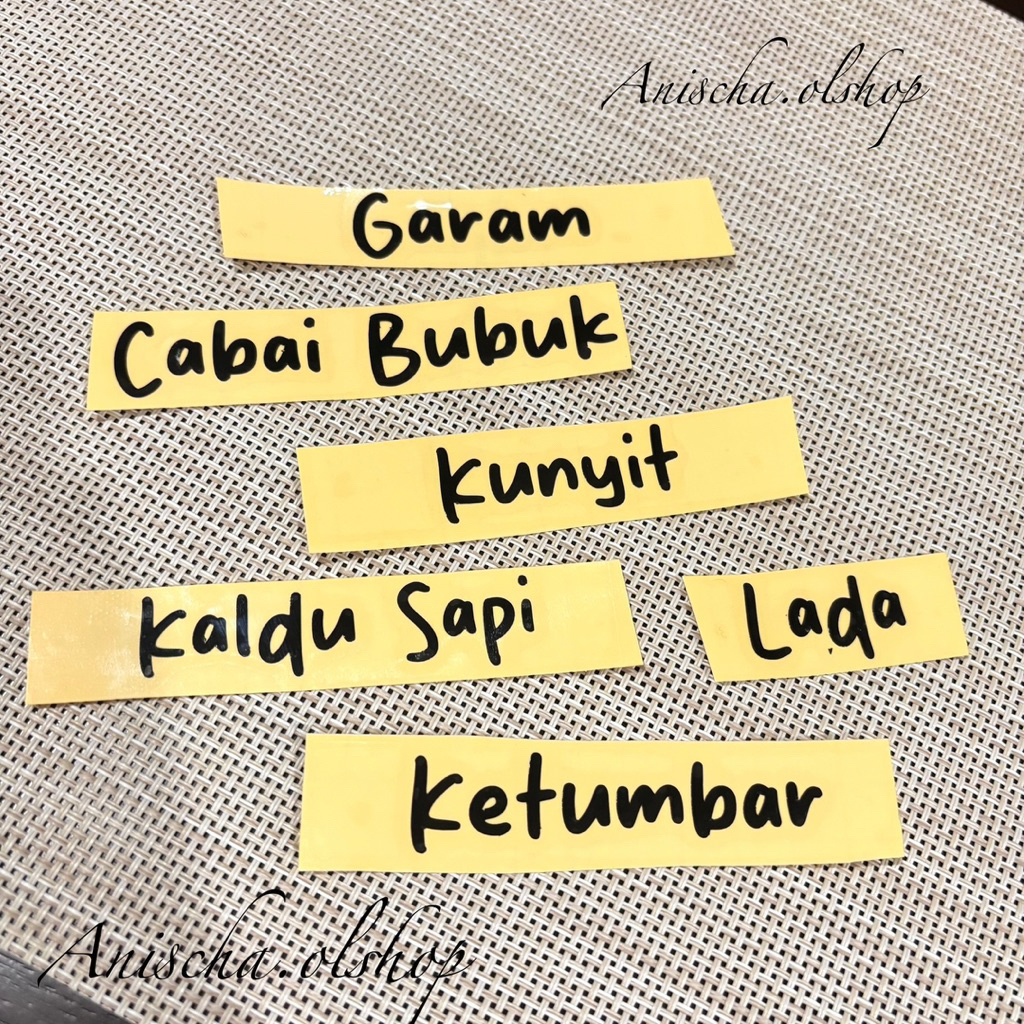 Anischa.olshop
Garam
Cabai Bubuk
Kunyit
Kaldu Sapi
Lada
Ketumbar
Anischa.olshop